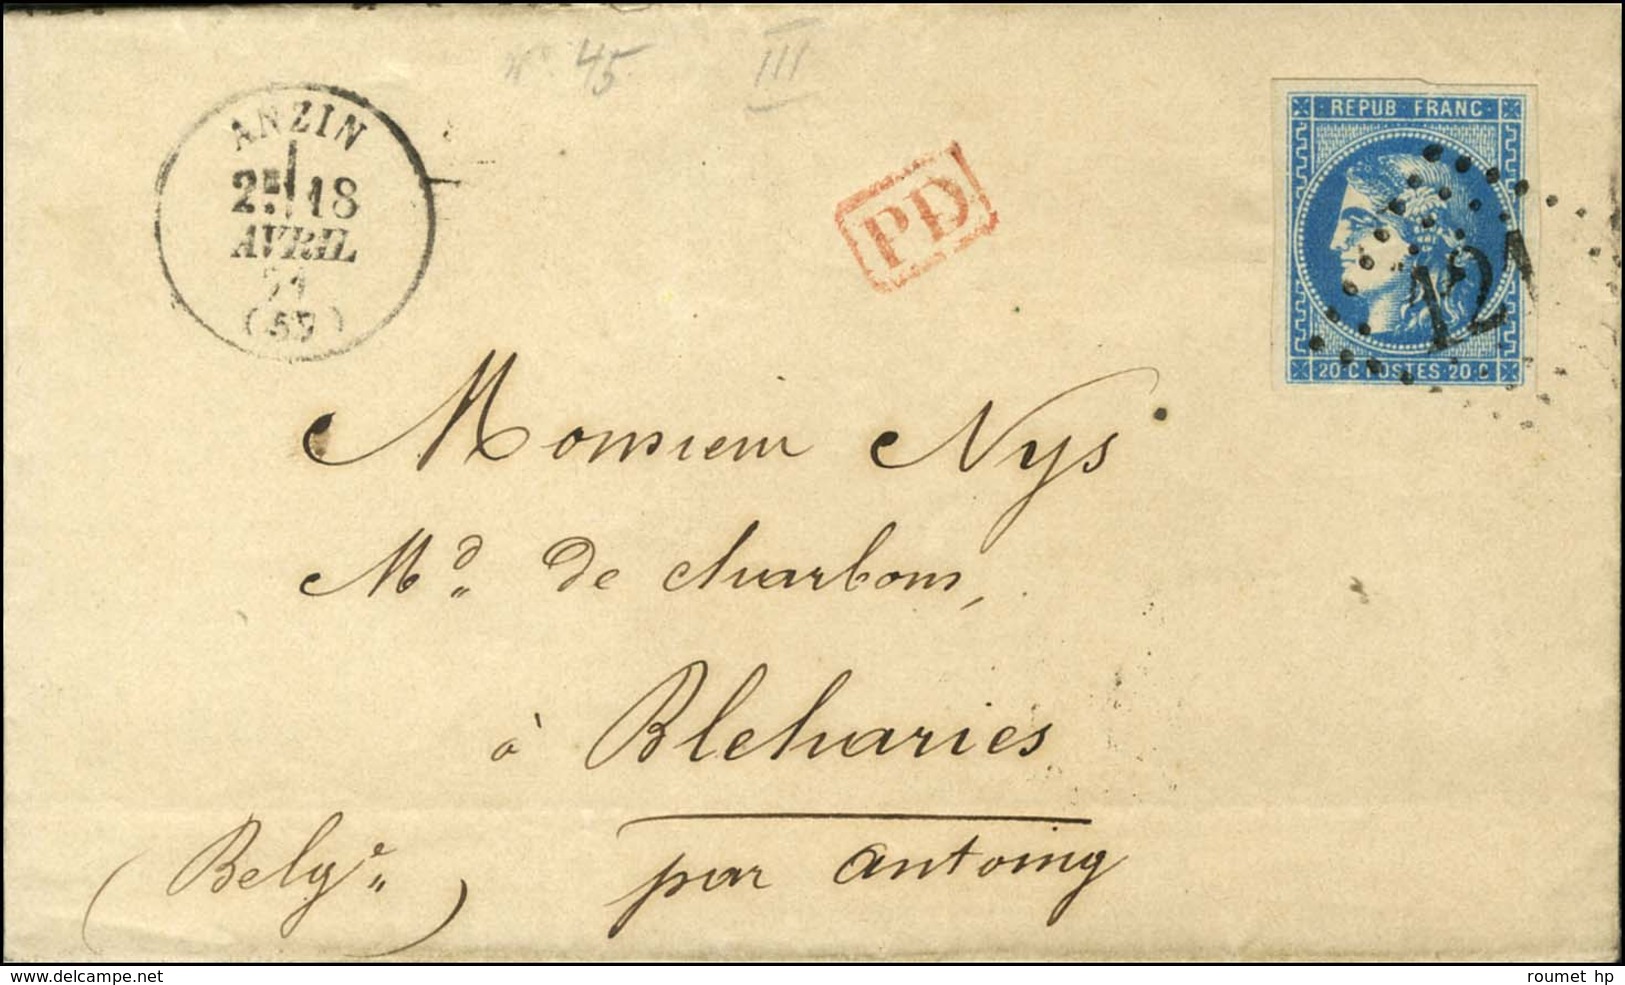 N° 45 III
ANZIN
2E 18
AVRIL
71
(57)
PD
REPUB FRANC
121
20 C POSTES 20 C
Monsieur Nys
Md. de charbons,
à Bleharies
par antoing
(Belg.e)
www.delcampe.net
roumet hp